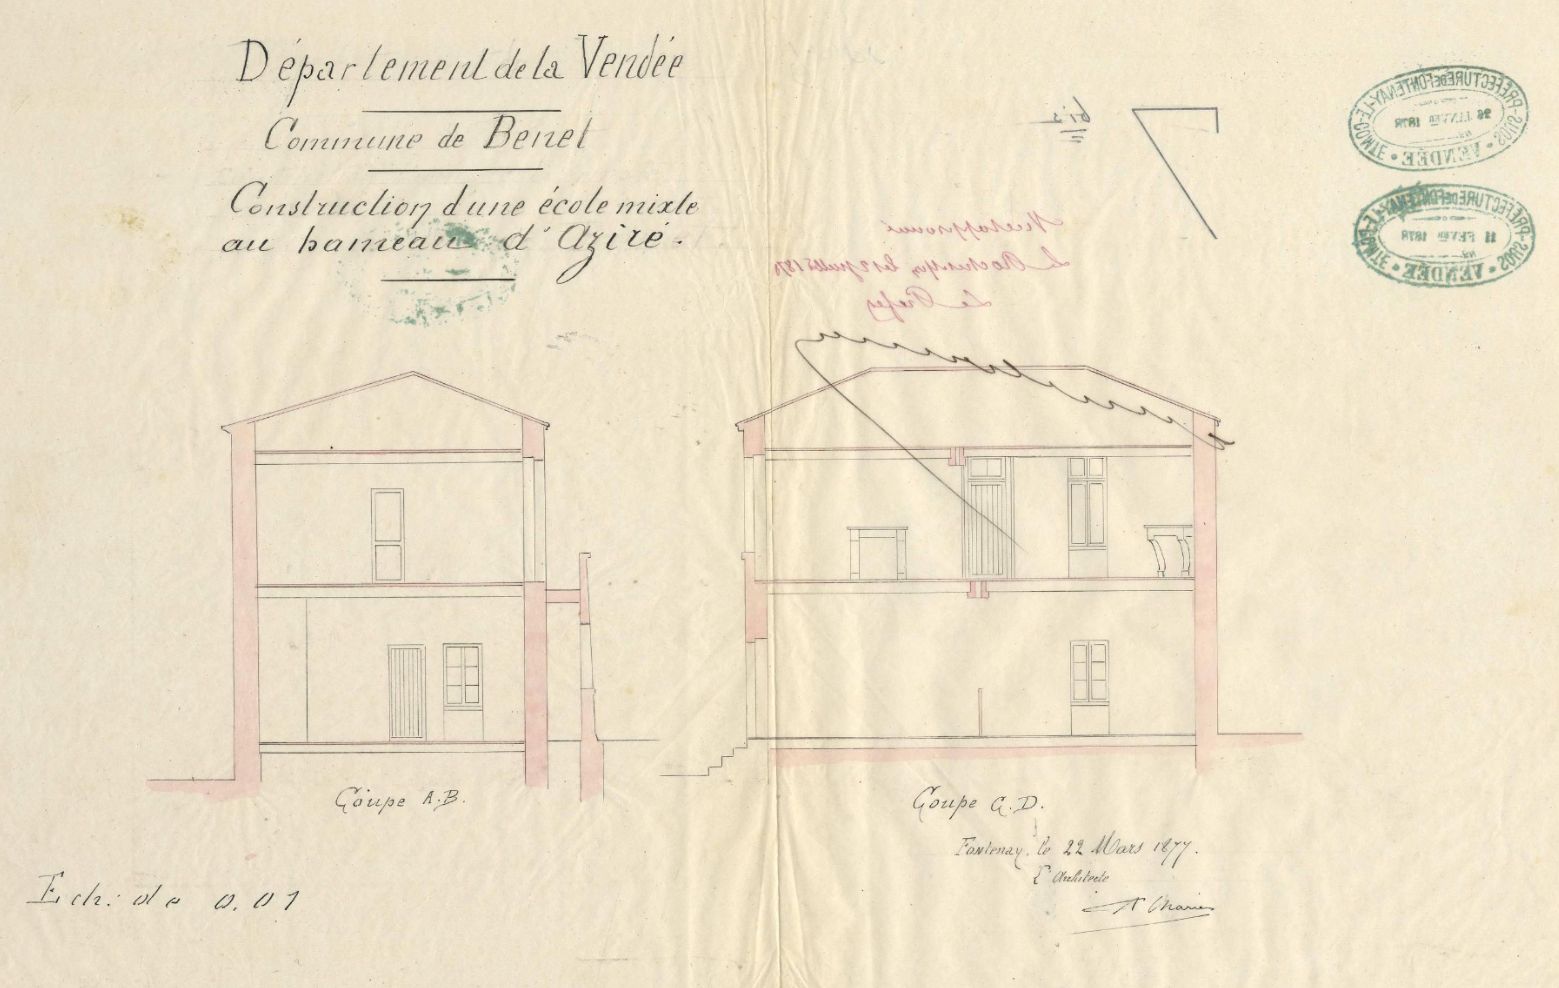 Département de la Vendée
Commune de Benet
Construction d'une école mixte
au hameau d'Aziré.
bis
7
SOUS-PRÉFECTURE DE FONTENAY-LE-COMTE
26 JANVIER 1878
VENDÉE
SOUS-PRÉFECTURE DE FONTENAY-LE-COMTE
11 FEVER 1878
VENDÉE
Vu et approuvé
La Roche s/yon, le 12 juillet 187
Le Préfet
Coupe A.B.
Coupe C.D.
Fontenay, le 22 Mars 1877.
L'Architecte
Ech: de 0.01